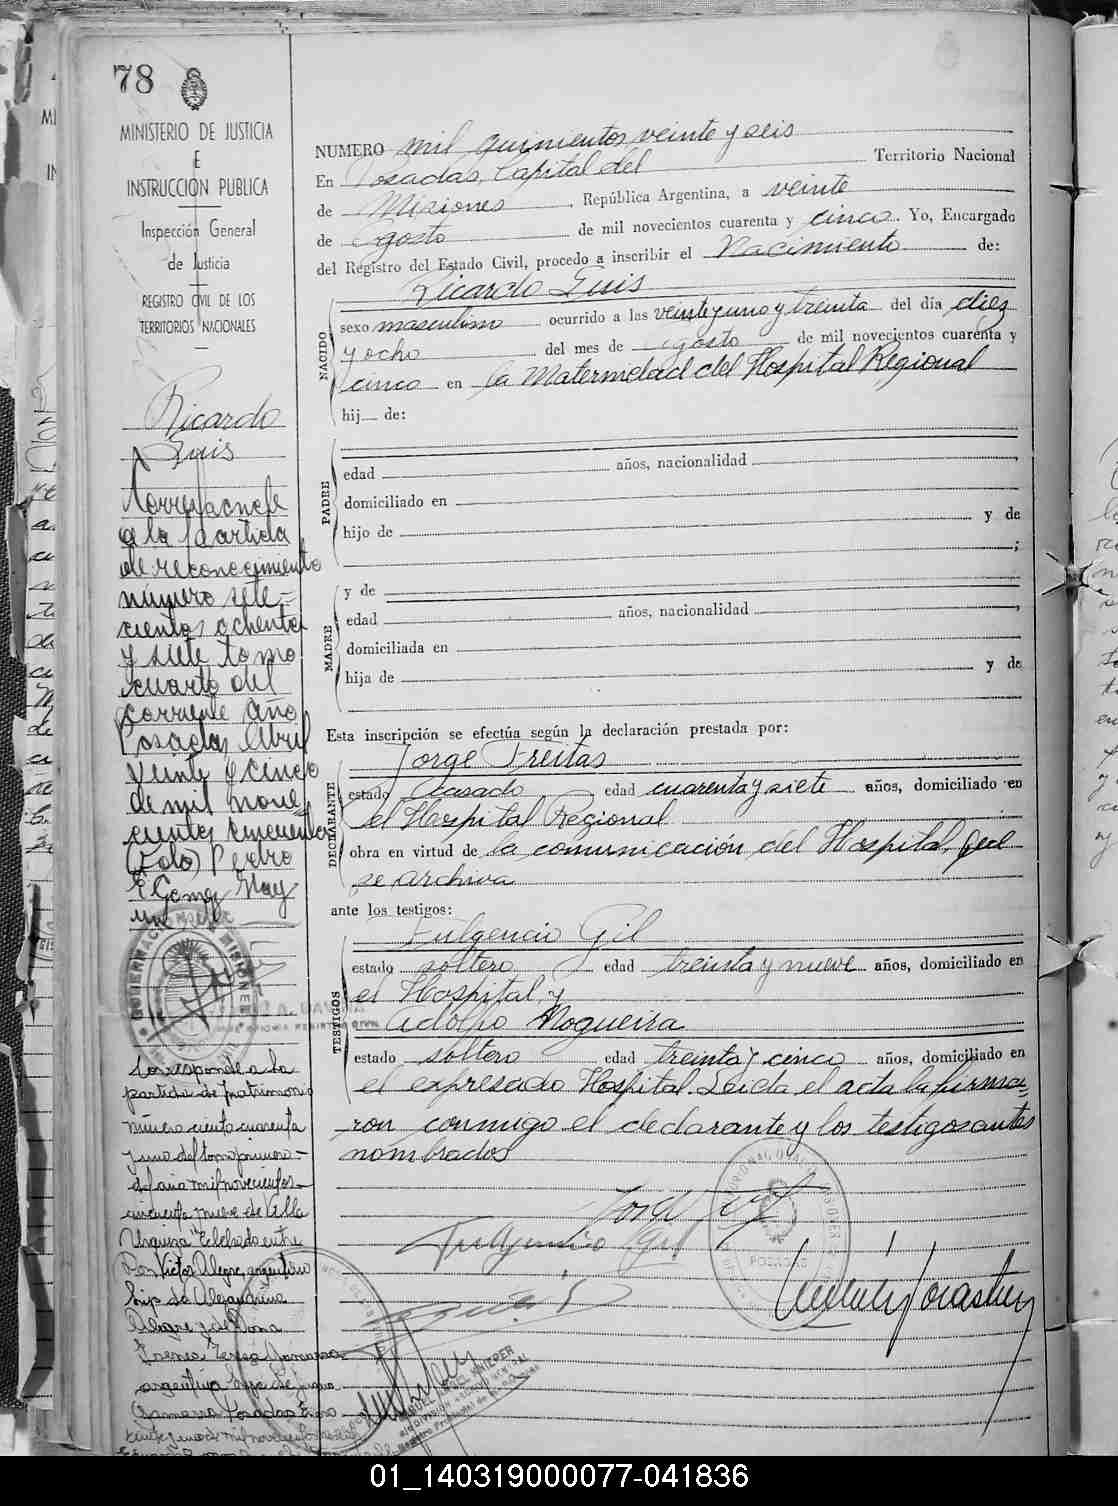 78
MINISTERIO DE JUSTICIA
E
INSTRUCCIÓN PUBLICA
Inspección General
de Justicia
REGISTRO CIVIL DE LOS
TERRITORIOS NACIONALES
Ricardo
Luis
Corresponde
a la partida
de reconocimiento
número sete-
cientos ochenta
y siete tomo
cuarto del
corriente año
Posadas Abril
veinte y cinco
de mil nove
cientos cincuenta
(Fdo) Pedro
E Gomez
Corresponde a la
partida de matrimonio
número ciento cuarenta
y uno del tomo primero-
del año mil novecientos-
cincuenta nueve de Villa
Urquiza Celebrado entre
Don Victor Alegre, argentino
hijo de Alejandrina
Alegre y de Dona
Irenea Teresa Gamarra
argentina hija de Juana
Gamarra Posadas Enero
NUMERO mil quinientos veinte y seis
En Posadas, Capital del Territorio Nacional
de Misiones, República Argentina, a veinte
de Agosto de mil novecientos cuarenta y cinco. Yo, Encargado
del Registro del Estado Civil, procedo a inscribir el Nacimiento de:
Ricardo Luis
NACIDO
sexo masculino ocurrido a las veinte y uno y treinta del día diez
y ocho del mes de Agosto de mil novecientos cuarenta y
cinco en la Maternidad del Hospital Regional
hij de:
PADRE
edad años, nacionalidad
domiciliado en
hijo de y de
;
MADRE
y de
edad años, nacionalidad ,
domiciliada en
hija de y de
Esta inscripción se efectúa según la declaración prestada por:
DECLARANTE
Jorge Freitas
estado Casado edad cuarenta y siete años, domiciliado en
el Hospital Regional
obra en virtud de la comunicación del Hospital, que
se archiva
ante los testigos:
TESTIGOS
Fulgencio Gil
estado soltero edad treinta y nueve años, domiciliado en
el Hospital y
Adolfo Nogueira
estado soltero edad treinta y cinco años, domiciliado en
el expresado Hospital. Leida el acta la firma=
ron conmigo el declarante y los testigos antes
nombrados
Fulgencio Gil
POSADAS
01_140319000077-041836